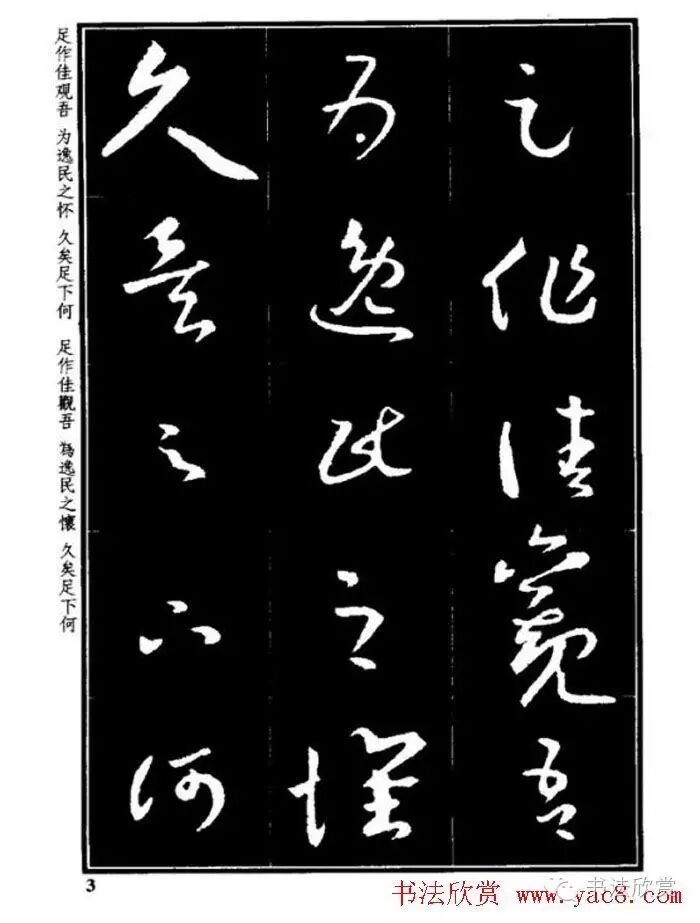 足作佳觀吾
為逸民之懷
久矣足下何
足作佳观吾 为逸民之怀 久矣足下何 足作佳觀吾 為逸民之懷 久矣足下何
3
书法欣赏
书法欣赏 www.yac8.com